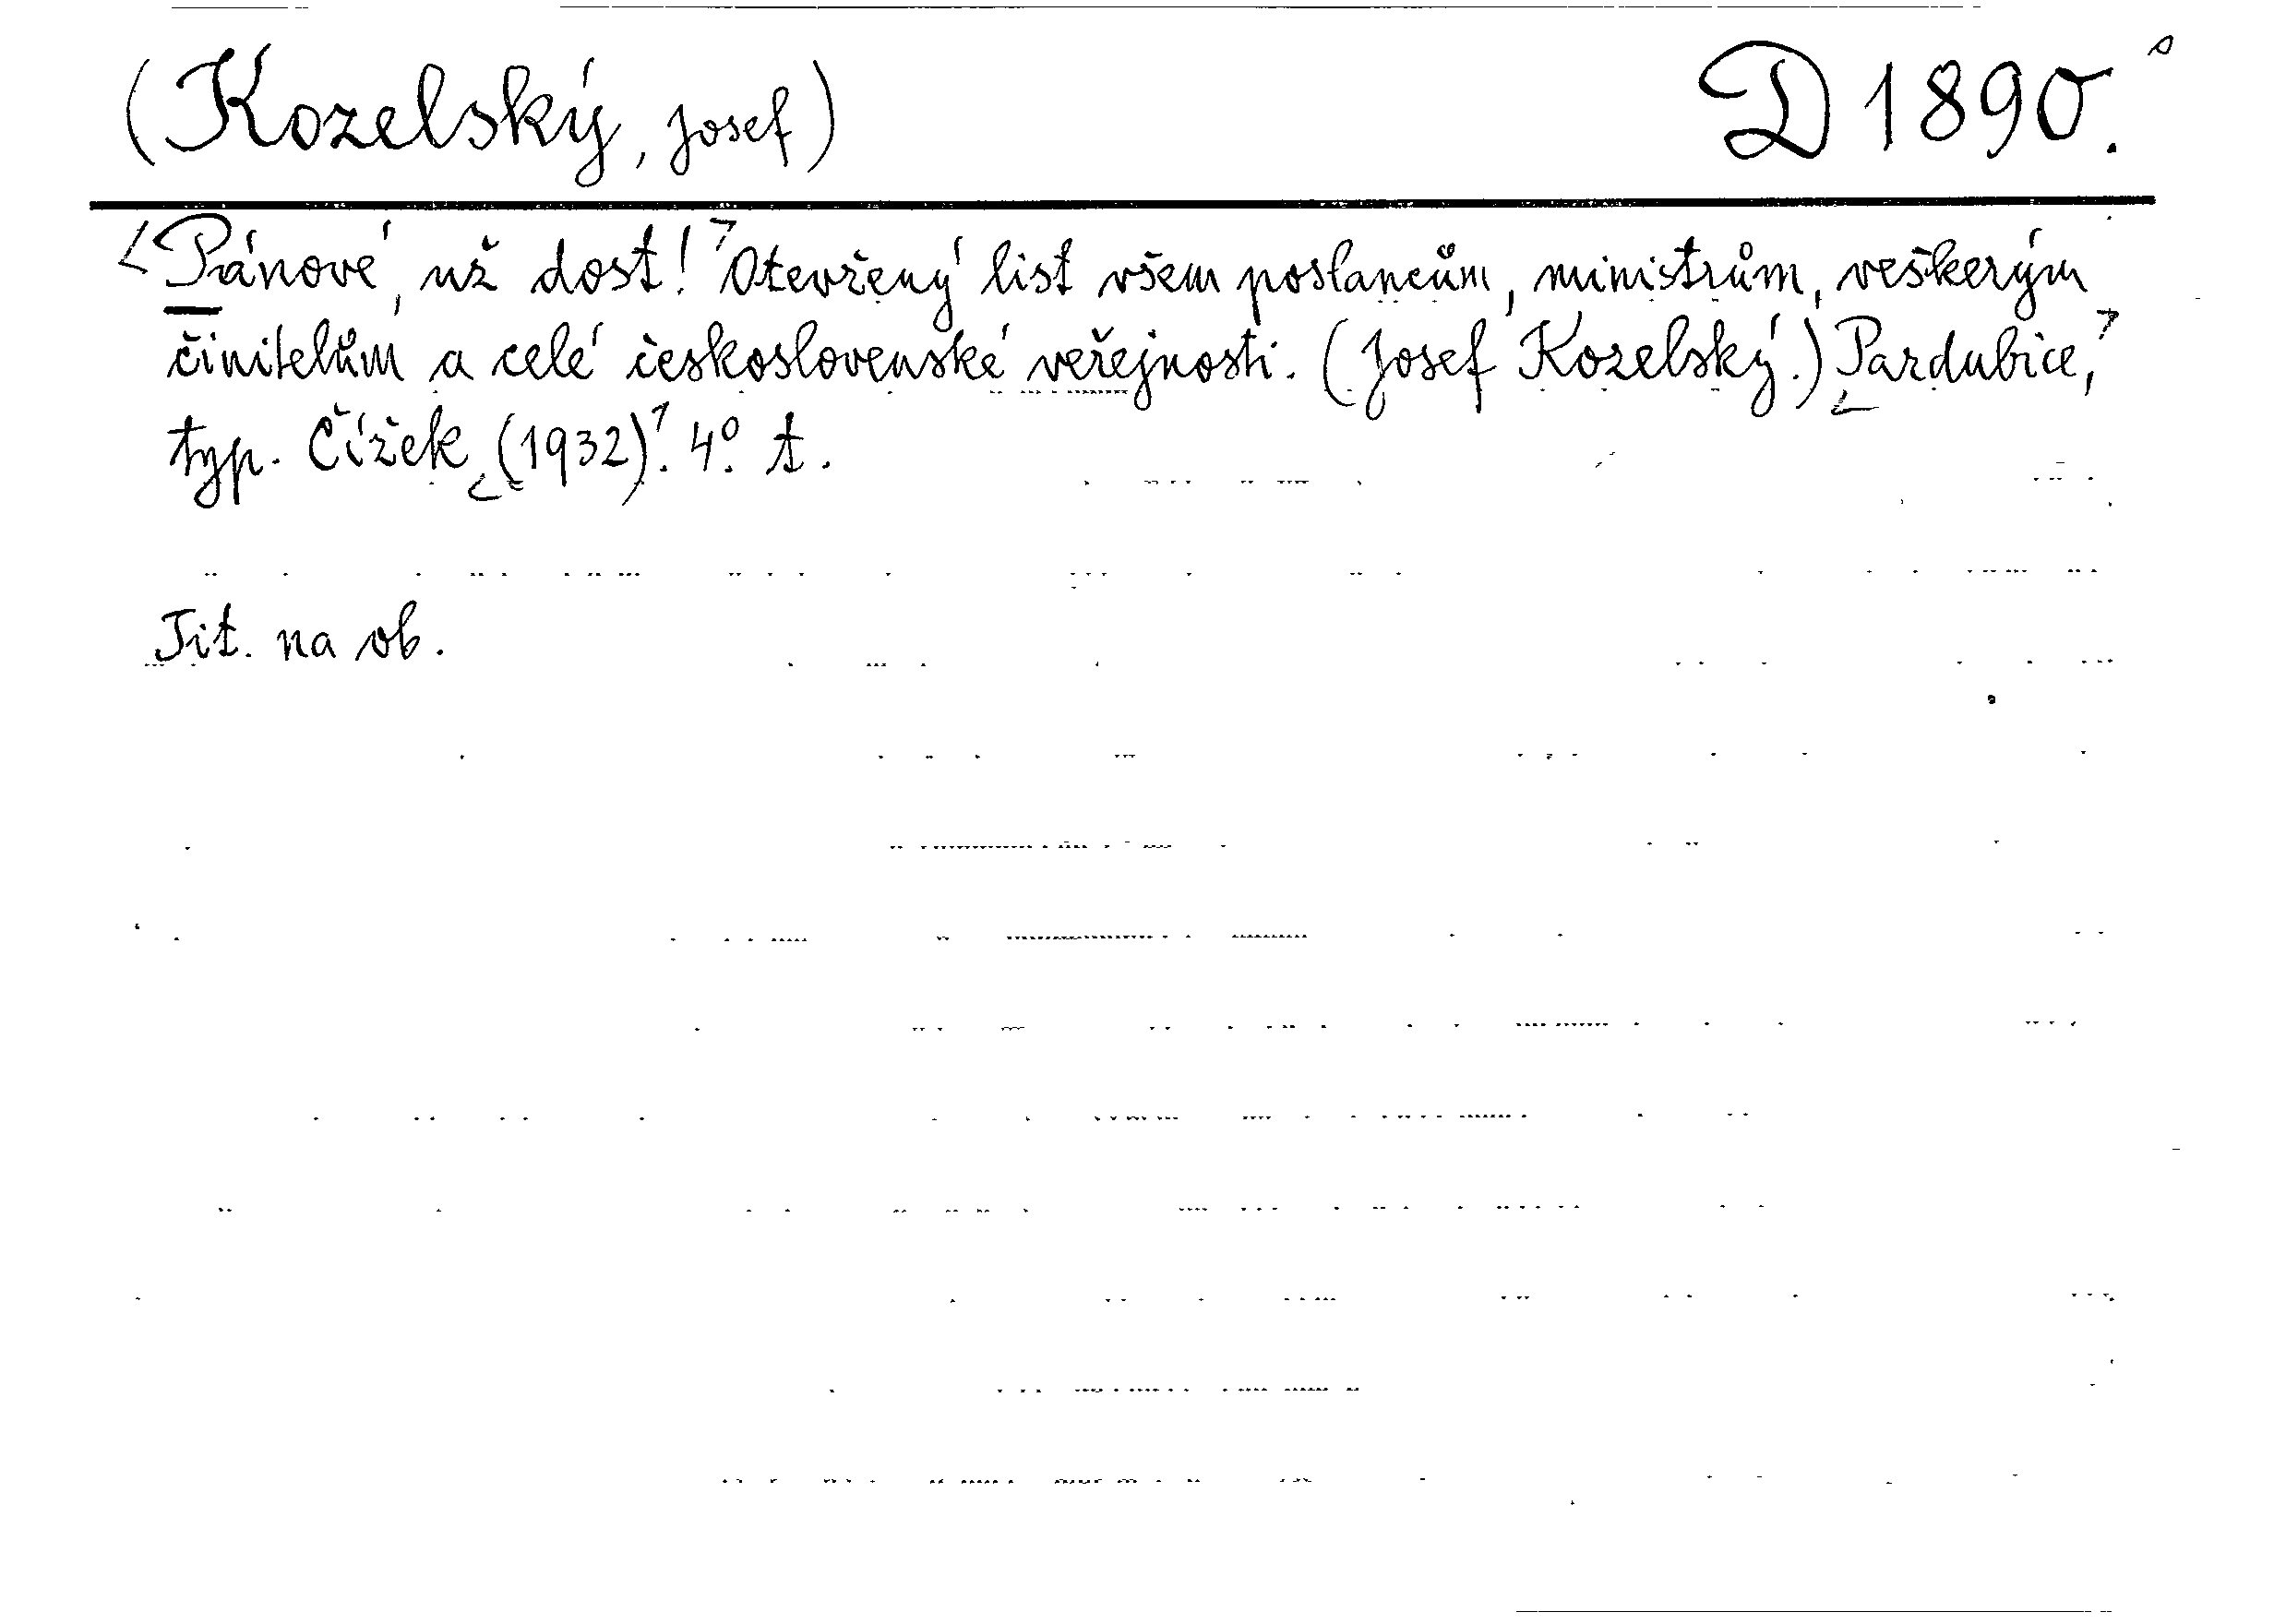 (Kozelský, Josef) D 1890.
<Pánové, už dost!> Otevřený list všem poslancům, ministrům, veškerým
činitelům a celé československé veřejnosti. (Josef Kozelský.) <Pardubice,>
typ. Čížek <(1932)>. 4°. t.
Tit. na ob.